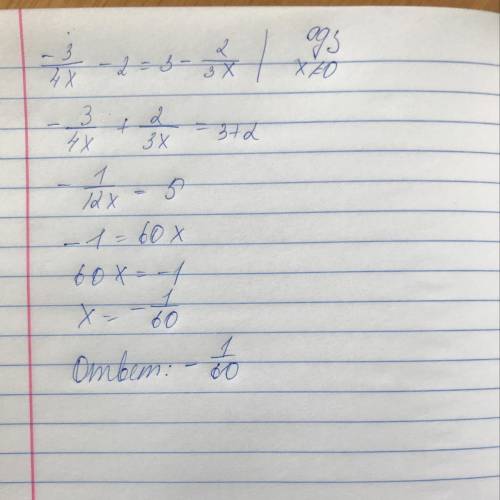 -3/4x - 2 = 3 - 2/3x | ОДЗ x≠0
- 3/4x + 2/3x = 3+2
- 1/12x = 5
-1 = 60x
60x = -1
x = - 1/60
Ответ: - 1/60